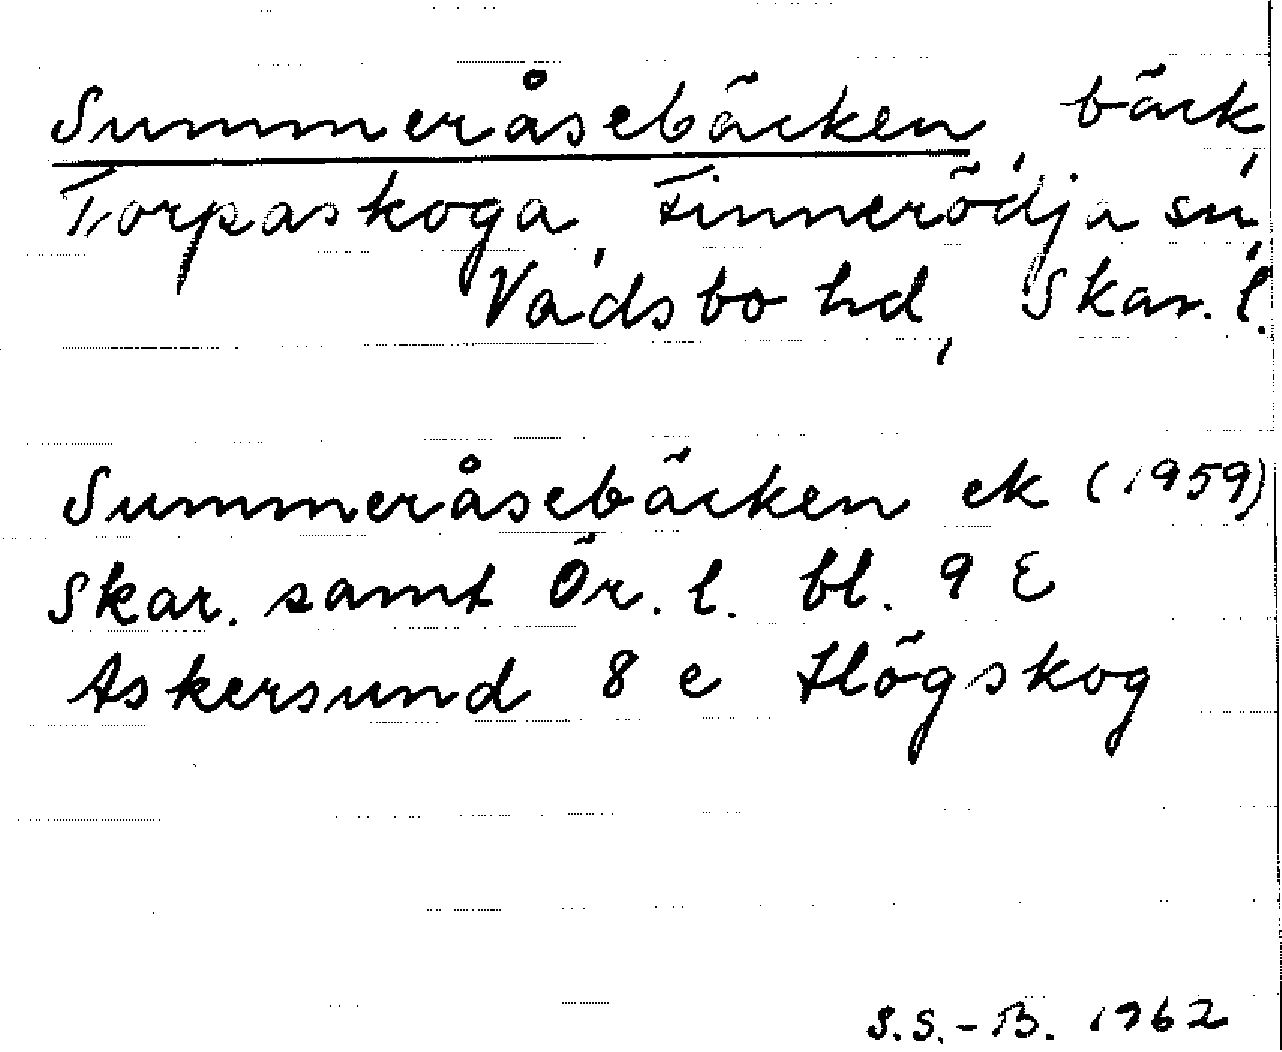 Summeråsebäcken, bäck,
Torpaskoga, Finnerödja sn,
Vadsbo hd, Skar. l.
Summeråsebäcken ek (1959)
Skar. samt Ör. l. bl. 9 E
Askersund 8 e Högskog
S.S.-B. 1962